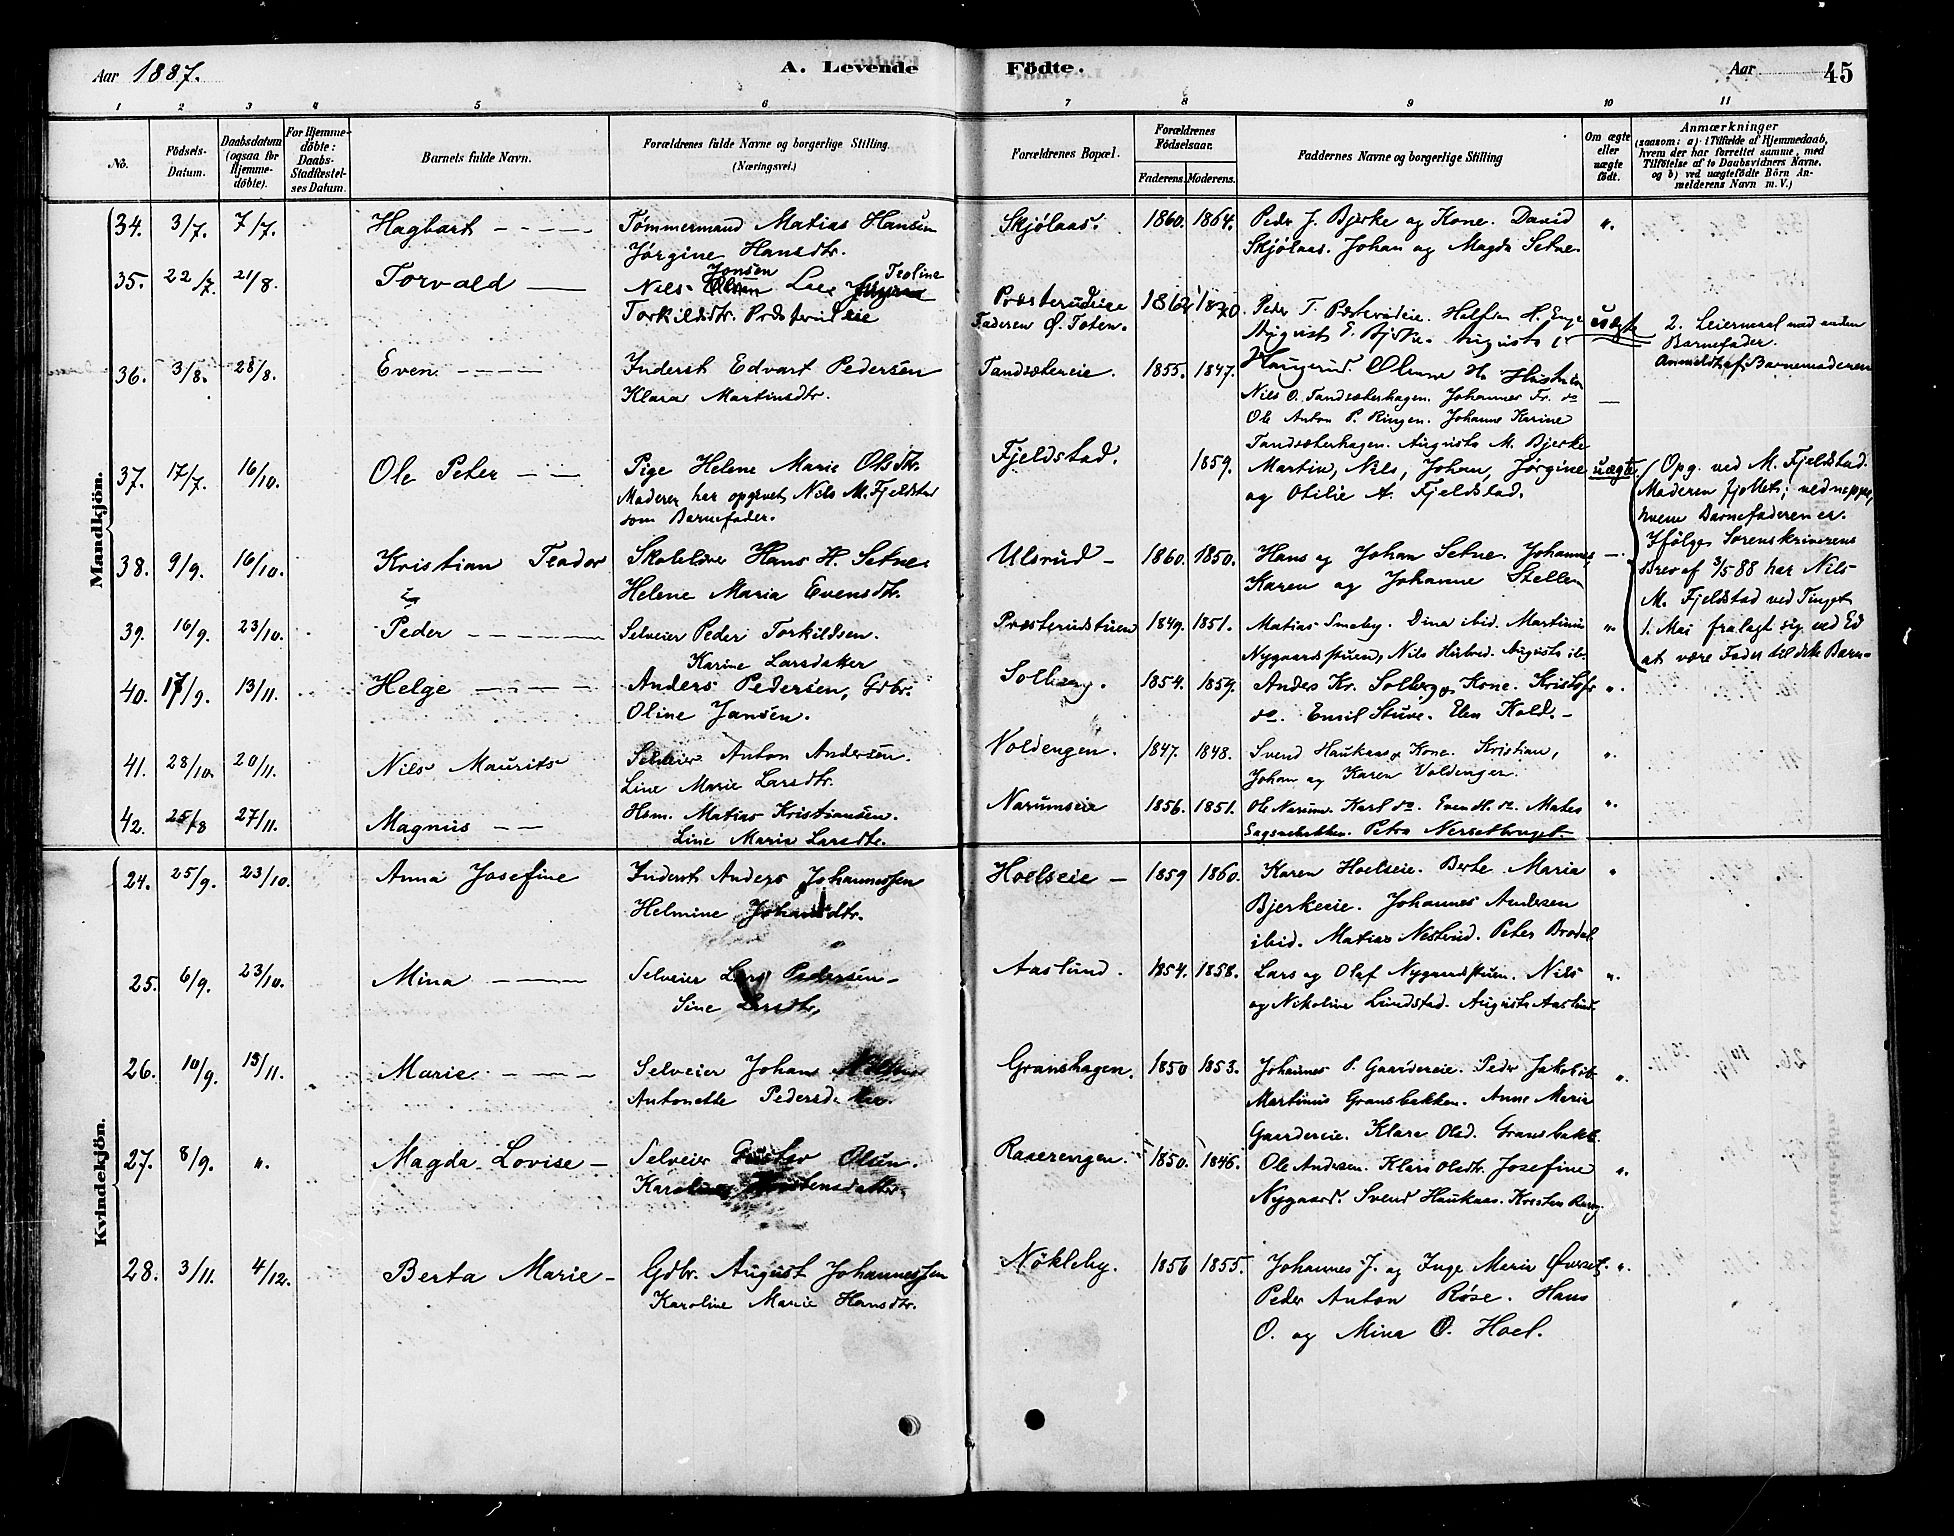 Aar 1887. A. Levende Fødte. Aar 45
1 2 3 4 5 6 7 8 9 10 11
No. Födsels-Datum. Daabsdatum (ogsaa for Hjemmedöbte). For Hjemmedöbte: Daabs-Stadfæstelses Datum. Barnets fulde Navn. Forældrenes fulde Navne og borgerlige Stilling. (Næringsvei.) Forældrenes Bopæl. Forældrenes Födselsaar. Faderens. Moderens. Faddernes Navne og borgerlige Stilling Om ægte eller uægte födt. Anmærkninger (saasom: a) i Tilfælde af Hjemmedaab, hvem der har forrettet samme, med Tilföielse af to Daabsvidners Navne, og b) ved uægtefödte Börn Anmelderens Navn m. V.)
Mandkjön.
34. 3/7. 7/7. Hagbart Tømmermand Matias Hansen Skjölaas. 1860. 1864. Peder J. Bjerke og Kone. David "
Jørgine Hansdtr. Skjölaas. Johan og Magda Setne.
35. 22/7. 21/8. Torvald Nils Jonsen Lee Teoline Præsterudeie 1862 1870. Peder T. Præsterudeie. Halften H. Enge uægte 2. Leiermaal med anden
Torkildsdtr. Præsterudeie Faderen Ø. Toten. August E. Bjerke. Augusta Barnefader.
36. 3/8. 28/8. Even Inderst Edvart Pedersen Tandsætereie. 1855. 1847. Haugerud Anmeldt af Barnemoderen
Klara Martinsdtr. Nils O. Tandsæterhagen. Johannes Fr. do
Ole Anton P. Ringen. Johanne Karine
Tandsæterhagen. Augusta M. Bjerke
37. 17/7. 16/10. Ole Peter Pige Helene Marie Olsdtr. Fjeldstad. 1859. Martin, Nils, Johan, Jørgine uægte Opg. ved M. Fjeldstad.
Moderen har opgivet Nils M. Fjeldstad og Otilie A. Fjeldstad. Moderen fjollet; ved neppe,
som Barnefader. hvem Barnefaderen er.
38. 9/9. 16/10. Kristian Teodor Skolelærer Hans H. Setne. Ulsrud 1860. 1850. Hans og Johan Setne. Johannes, Ifølge Sorenskriverens
Helene Maria Evensdtr. Karen og Johanne Brev af 3/5 88 har Nils
M. Fjeldstad ved Tinget
39. 16/9. 23/10. Peder Selveier Peder Torkildsen. Præsterudstuen 1849. 1851. Matias Smeby. Dina ibid. Martinus " 1. Mai fralagt sig ved Ed
Karine Larsdatter Nygaardstuen, Nils ibid. Augusta at være Fader til dette Barn
40. 17/9. 13/11. Helge Anders Pedersen, Gdbr. Solberg. 1854. 1859. Anders Kr. Solberg og Kone. Kristofer "
Oline Jansen. do. Emil Stuve. Elen Kold.
41. 28/10. 20/11. Nils Maurits Selveier Anton Andersen. Voldengen. 1847. 1848. Svend Haukaas og Kone. Kristian, "
Line Marie Larsdtr. Johan og Karen Voldengen.
42. 25/8 27/11. Magnus Hsm. Matias Kristiansen. Narumseie 1856. 1851. Ole Narum. Karl do. Even H. do. Mates "
Line Marie Larsdtr. Sagsnebakken. Petra
Kvindekjön.
24. 25/9. 23/10. Anna Josefine Inderst Anders Johannessen Hoelseie 1859 1860. Karen Hoelseie. Berte Maria "
Helmine Johansdtr. Bjerkeeie. Johannes Andersen
ibid. Matias Nesterud. Peter
25. 6/9. 23/10. Mina Selveier Lars Pedersen Aaslund. 1854. 1858. Lars og Olaf Nygaardstuen. Nils "
Sine Larsdtr. og Nikoline Lundstad. Augusta Aaslund.
26. 10/9. 13/11. Marie Selveier Johan Granshagen. 1850 1853. Johannes P. Gaardereie. Peder "
Antonette Pedersdatter. Martinus Gransbakken. Anne Maria
Gaardereie. Klara Olsd. Gransbakk.
27. 8/9. " Magda Lovise Selveier Gustav Olsen. 1850. 1846. Ole Andersen. Klara Olsdtr. Josefine "
Karoline Nygaard. Svend Haukaas.
28. 3/11. 4/12. Berta Marie Gdbr. August Johannessen Nökleby. 1856 1855. Johannes J. og Inge Marie "
Karoline Marie Hansdtr. Peder Anton Røse. Hans
O. og Mina O. Hoel.